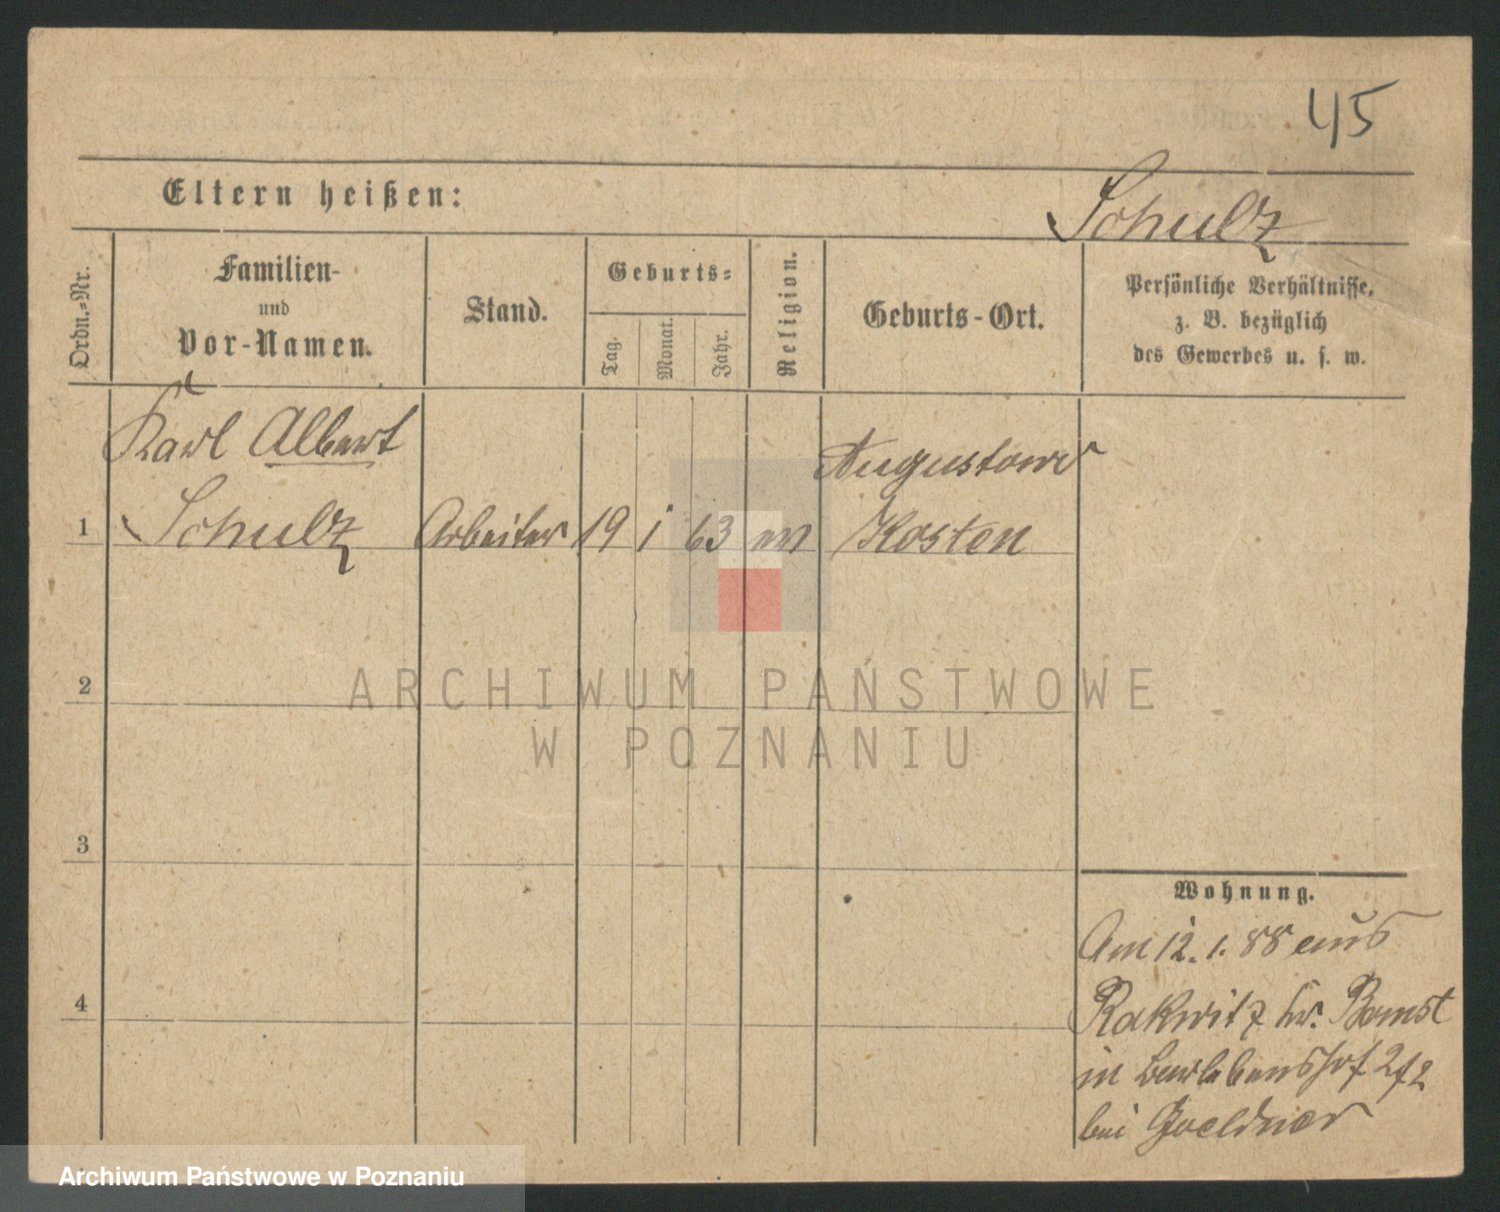 45
Eltern heißen:
Schulz
Ordn.=Nr.
Familien-
und
Vor-Namen.
Stand.
Geburts=
Tag.
Monat.
Jahr.
Religion.
Geburts-Ort.
Persönliche Verhältnisse,
z. B. bezüglich
des Gewerbes u. s. w.
Karl Albert
Augustowo
1 Schulz Arbeiter 19 1 63 ev Kosten
2
3
4
ARCHIWUM PAŃSTWOWE
W POZNANIU
Wohnung.
Am 12. 1. 88 aus
Rakwitz Kr. Bomst
in 2/2
bei Goeldner
Archiwum Państwowe w Poznaniu